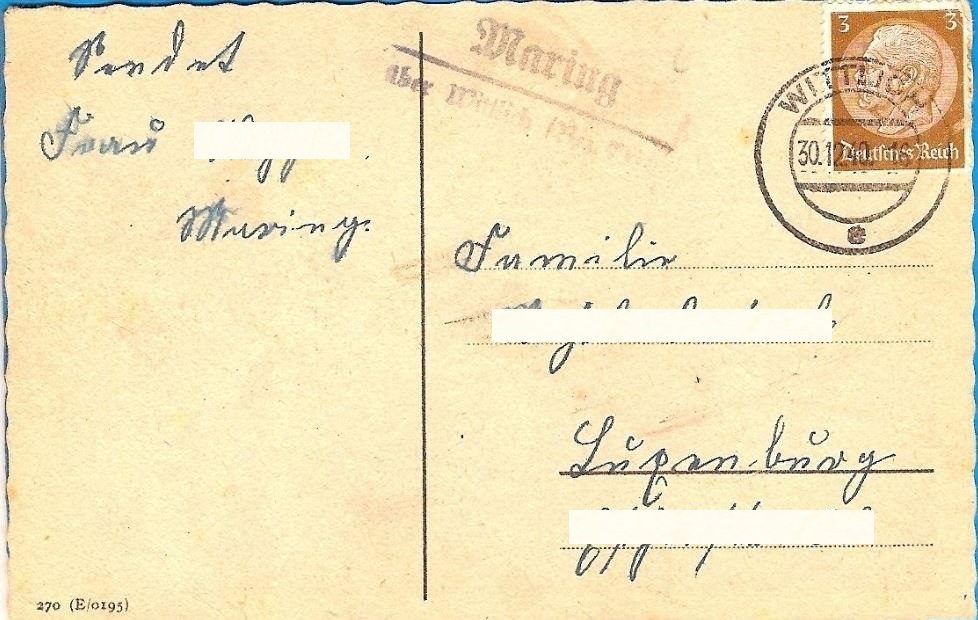 Sendet
Frau
Maring.
Maring
über Wittlich
3 3
Deutsches Reich
WITTLICH
30.12.40.
Familie
Luxemburg
270 (E/0195)